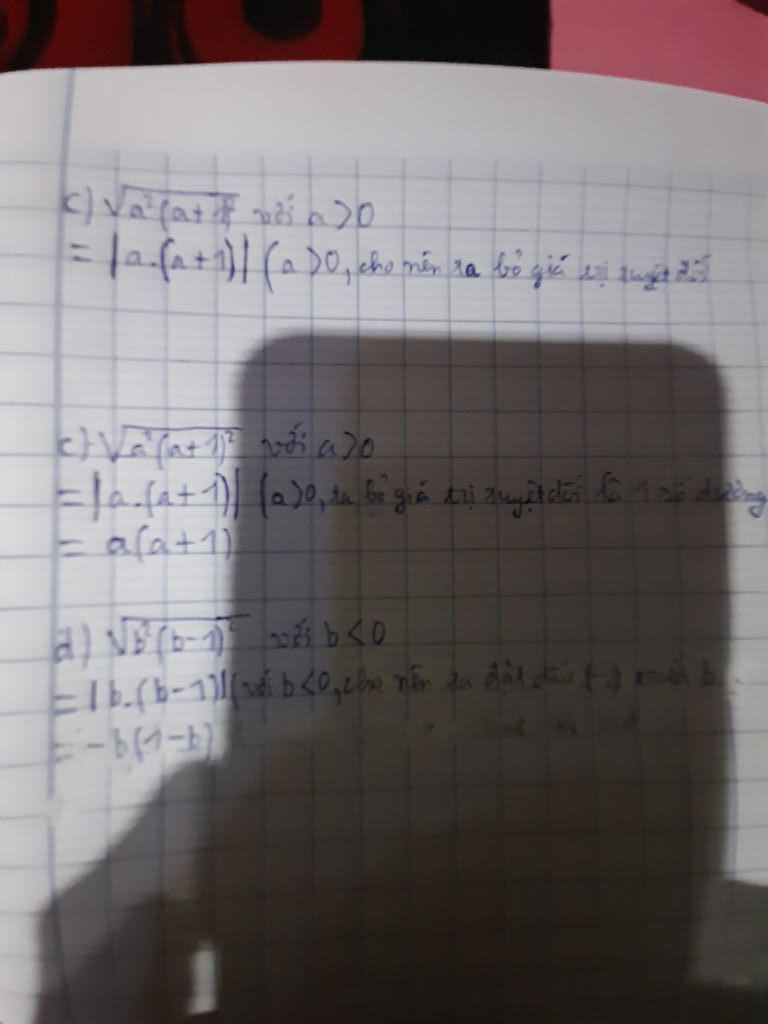 c) √a²(a+1)² với a>0
= |a.(a+1)| (a>0, cho nên ta bỏ giá trị tuyệt đối
c) √a²(a+1)² với a>0
= |a.(a+1)| (a>0, ta bỏ giá trị tuyệt đối là 1 số dương
= a(a+1)
d) √b²(b-1)² với b<0
= |b.(b-1)| (với b<0, cho nên ta đặt dấu (-) trước b
= -b(1-b)